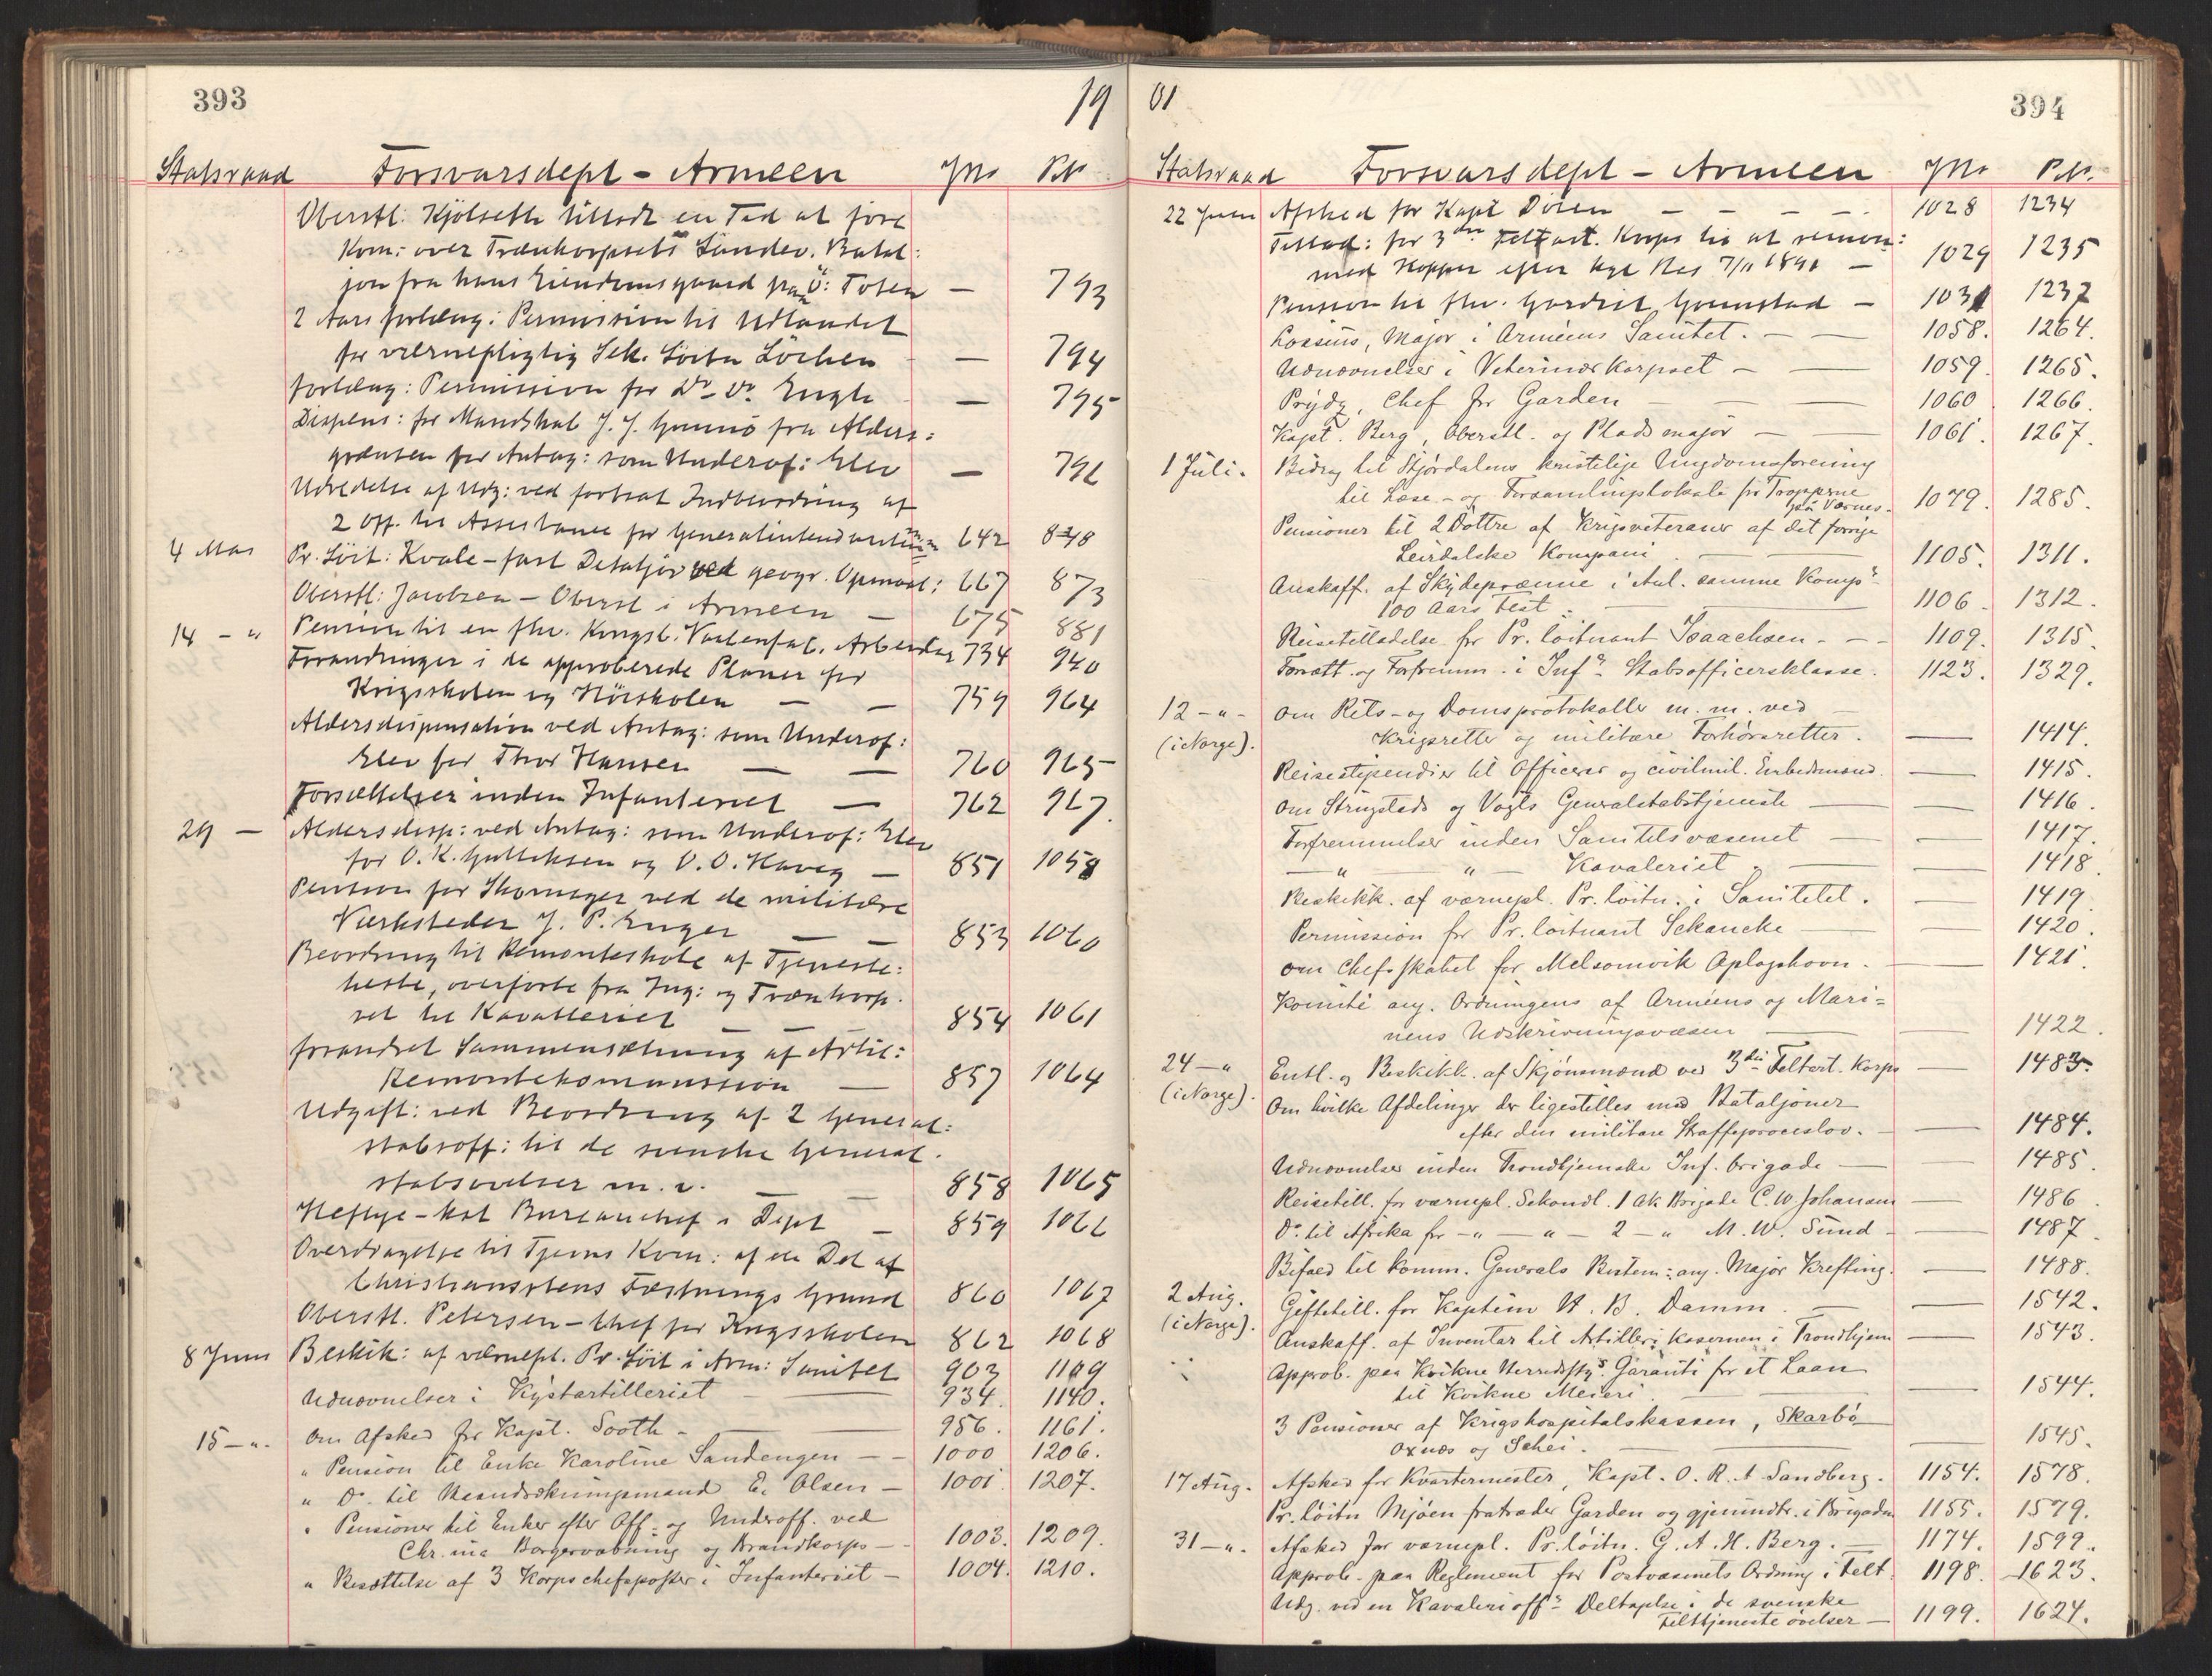 393
19
Statsraad Forsvarsdept - Armeen JNo PN
Oberstl: Kjölseth tilladt en Tid at före
Kom: over Trænkorpsets Landev. Batal:
jon fra hans Eiendomsgaard paa Ö: Toten — 793
2 Aars forlæng: Permission til Udlandet
for værnepligtig Sek. Löitn Löchen — 794
Forlæng: Permission for Do Vo. Engh — 795
Dispens: for Mandskab J. J. fra Alders:
grænsen for Antag: som Underof: Elev — 796
Udredelse af Udg: ved fortsat Indbeordring af
2 Off. til Assistance for Generalintendanturen 642 848
4 Mai Pr. Löit: Kvale - fast Detaljör ved geogr. Opmaal: 667 873
Oberstl: Jacobsen - Oberst i Armeen — 675 881
14 - " Pension til en fhv. Kongsb. Vaabenfab. Arbeider 734 940
Forandringer i de approberede Planer for
Krigsskolen og Höiskolen — — 759 964
Aldersdispensation ved Antag: som Underof:
Elev for Thor Hansen — — 760 965
Forsættelser inden Infanteriet — 762 967.
29 — Aldersdisp: ved Antag: som Underof: Elev
for O. K. Gulliksen og O. O. Haveg — 851 1058
Pension for Skomager ved de militære
Værksteder J. P. Enger — — 853 1060
Beordring til Remonteskole af Tjeneste:
heste, overförte fra Ing: og Trænkorp.
set til Kavalleriet — — 854 1061
forandret Sammensætning af Artil:
Remontekommission — 857 1064
Udgift: ved Beordring af 2 General:
stabsoff: til de svenske General.
stabsövelser m. v. — — 858 1065
Heftye - kst Bureauchef i Dept — 859 1066
Overdragelse til Tjöms Kom: af en Del af
Christianstens Fæstnings Grund 860 1067
Oberstl. Petersen - Chef for Krigsskolen 862 1068
8 Juni Beskik: af værnepl. Pr. Löit i Arm: Sanitet 903 1109
Udnævnelser i Kystartilleriet — 934. 1140.
15 - ". Om Afsked for Kapt. Sooth - — 956. 1161.
" Pension til Enke Karoline Sandengen — - 1000 1206.
" Do. til Brandsökningsmand E. Olsen — 1001. 1207.
" Pensioner til Enker efter Off - og Underoff. ved
Chr.nia Borgervæbning og Brandkorps — - 1003. 1209.
" Besættelse af 3 Korpschefsposter i Infanteriet — 1004. 1210.
01
394
Statsraad Forsvarsdept - Armeen JNo PN.
22 Juni Afsked for Kapt Dören — - - -. 1028 1234
Tillad: for 3die Feltart. Korps til at remon:
med Hopper efter kgl Res 7/11 1891 — 1029 1235
Pension til fhv. Gardist — 1031 1237
Lossius, Major i Arméens Sanitet. — — 1058. 1264.
Udnævnelser i Veterinærkorpset — — 1059. 1265.
Prydz, Chef for Garden — — 1060. 1266.
Kapt. Berg, Oberstl. og Pladsmajor — — 1061. 1267.
1 Juli. Bidrag til Stjördalens kristelige Ungdomsforening
til Læse - og Forsamlingslokale for Tropperne
paa Værnes. 1079. 1285.
Pensioner til 2 Döttre af Krigsveteraner af det forrige
Leirdalske Kompani. — — 1105. 1311.
Anskaff. af Skydepræmie i Anl. samme Kompis
100 Aars Fest. — 1106. 1312.
Reisetilladelse for Pr. löitnant Isaachsen. — - 1109. 1315.
Forsætt. og Forfremm. i Infs. Stabsofficersklasse. 1123. 1329.
12 - " - Om Rets - og Domsprotokoller m. m. ved —
(i Norge). Krigsretter og militære Forhörsretter. — 1414.
Reisestipendier til Officerer og civilmil. Embedsmænd. — 1415.
Om Strugstads og Vogts Generalstabstjeneste — — 1416.
Forfremmelser inden Sanitetsvæsenet — — 1417.
— " — " — Kavaleriet. — — 1418.
Beskikk. af værnepl. Pr. löitn. i Sanitetet. — 1419.
Permission for Pr. löitnant Schancke — — 1420.
Om Chefsskabet for Melsomvik Oplagshavn. — — 1421.
Komité ang. Ordningens af Arméens og Mari=
nens Udskrivningsvæsen — — 1422.
24 — " Entl. og Beskikk. af Skjönsmænd ved 3die Feltart. Korps — 1483.
(i Norge). Om hvilke Afdelinger der ligestilles med Bataljoner
efter den militære Straffeproceslov. — — 1484.
Udnævnelser inden Trondhjemske Inf. brigade — — 1485.
Reisetill. for værnepl. Sekondl. 1 Ak Brigade C. W. Johansen — 1486
Do. til Afrika for - " — " — 2 - " M. W. Sund — 1487.
Bifald til Komm. Generals Bestem: ang. Major Krefting. — 1488.
2 Aug. Giftetill. for Kaptein H. B. Damm. — — 1542.
(i Norge). Anskaff. af Inventar til Artillerikasernen i Trondhjem — 1543.
Approb. paa Kvikne Herredsstys. Garanti for et Laan
til Kvikne Meieri. — — 1544.
3 Pensioner af Krigshospitalskassen, Skarbö
Oxnæs og Schei. — — 1545.
17 Aug. Afsked for Kvartermester, Kapt. O. R. A Sandberg. 1154. 1578.
Pr. löitn Mjöen fratræder Garden og gjenindtr. i Brigaden 1155. 1579.
31 - ". Afsked for værnepl. Pr. löitn. G. A. H. Berg. — 1174. 1599.
Approb. paa Reglement for Postvæsenets Ordning i Felt. 1198. 1623.
Udg. ved en Kavalerioffs. Deltagelse i de svenske
Felttjenesteövelser — 1199. 1624.